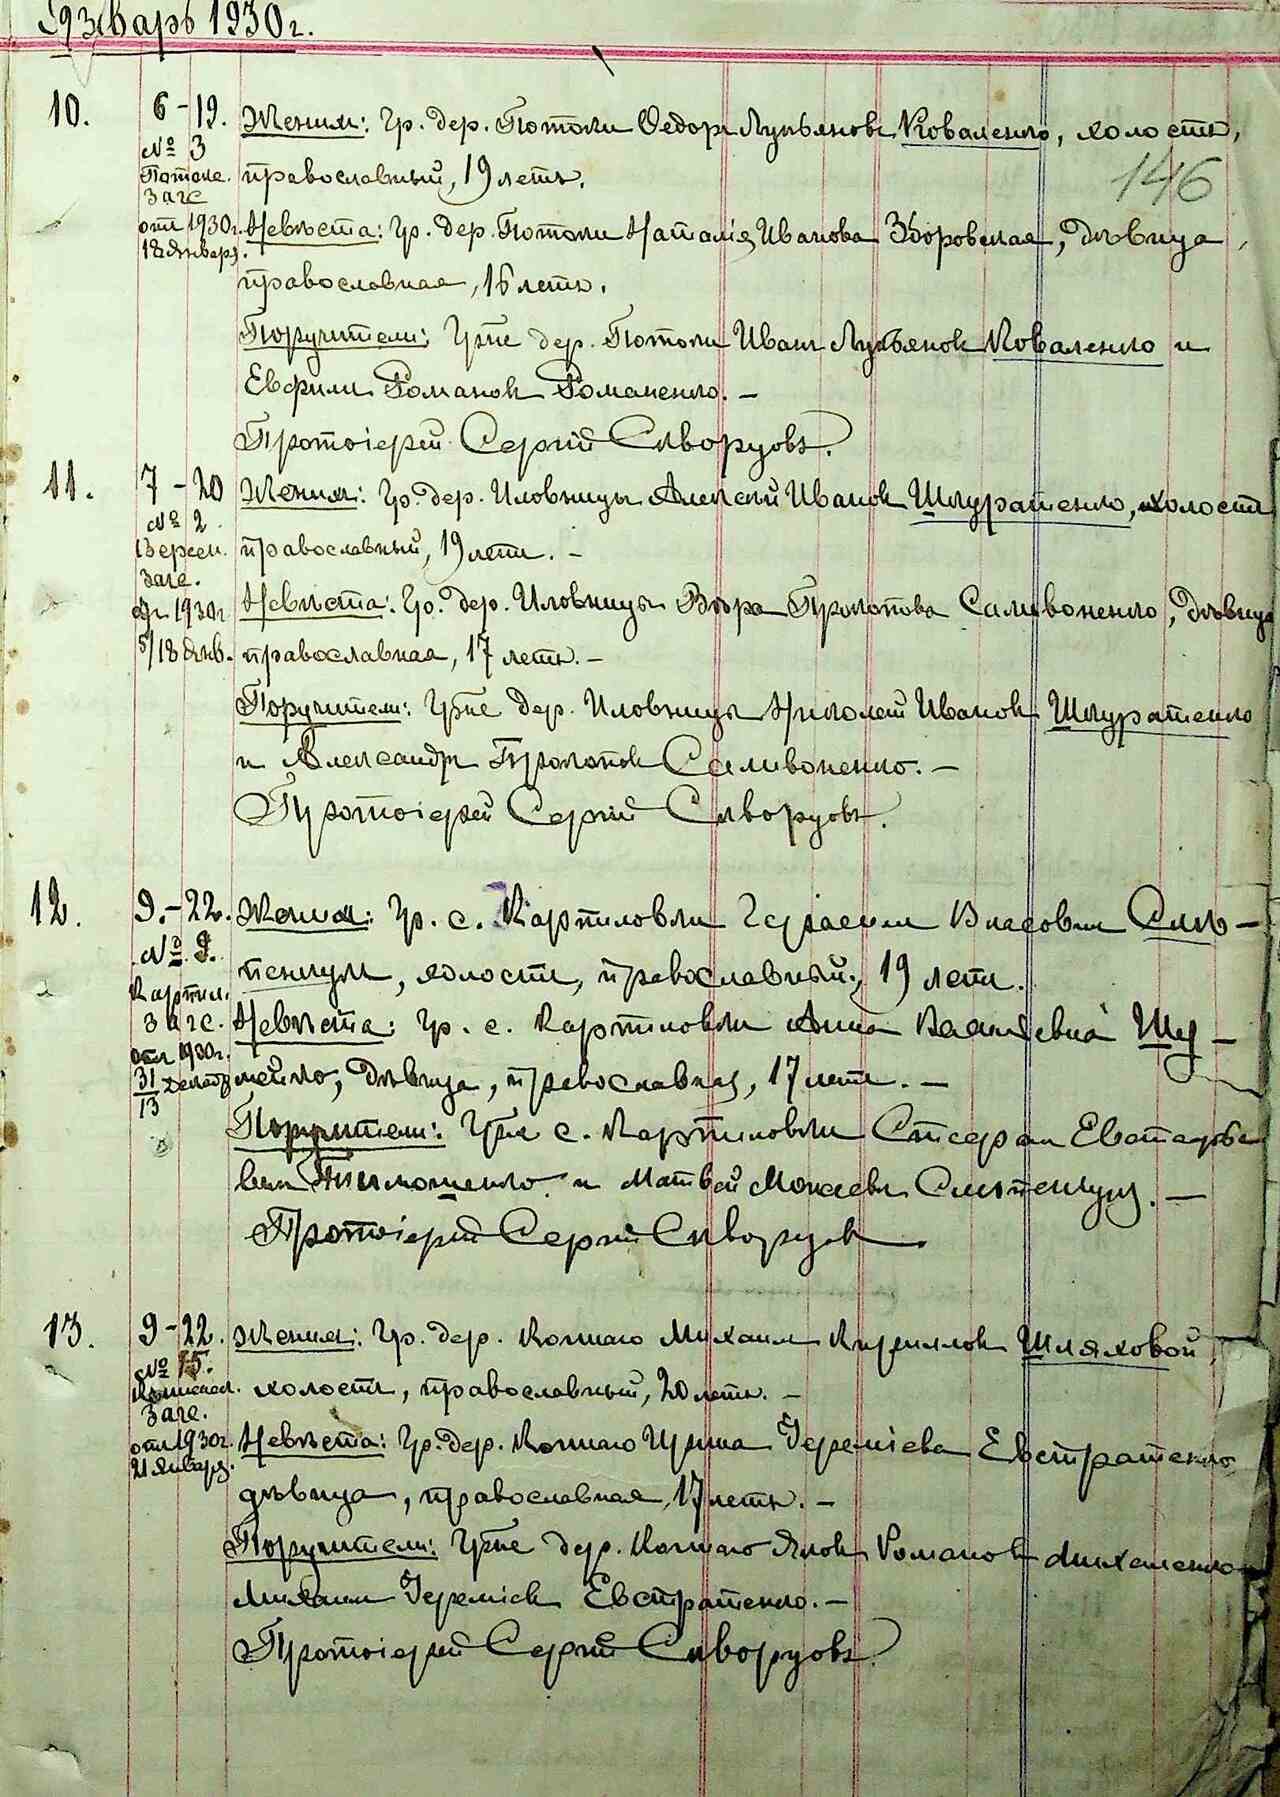 Январь 1930 г.
146
10.
6-19.
№ 3
Потоке.
Загс
отъ 1930 г.
18 Января.
Женихъ: Гр. дер. Потоки Федоръ Лукьяновъ Коваленко, холостъ,
православный, 19 летъ.
Невѣста: Гр. дер. Потоки Наталія Иванова Зборовская, дѣвица,
православная, 16 летъ.
Поручители: Гр-не дер. Потоки Иванъ Лукьяновъ Коваленко и
Романовъ Романенко. –
Протоіерей Сергій Скворцовъ.
11.
7-20
№ 2.
Загс.
отъ 1930 г.
5/18 Янв.
Женихъ: Гр. дер. Иловницы Алексей Ивановъ Шкуратенко, холостъ
православный, 19 летъ. –
Невѣста: Гр. дер. Иловницы Вѣра Прокопова Саливоненко, дѣвица
православная, 17 летъ. –
Поручители: Гр-не дер. Иловницы Николай Ивановъ Шкуратенко
и Александръ Прокоповъ Саливоненко. –
Протоіерей Сергій Скворцовъ.
12.
9.-22.
№ 9.
Карпил.
загс.
отъ 1930 г.
31/13
Женихъ: Гр. с. Карпиловки Герасим Власовъ Слѣ-
пенчукъ, холостъ, православный, 19 летъ.
Невѣста: Гр. с. Карпиловки Анна Шу-
мейко, дѣвица, православная, 17 летъ. –
Поручители: Гр-не с. Карпиловки Стефан
Тимошенко и Матвей Слѣпенчукъ. –
Протоіерей Сергій Скворцовъ.
13.
9-22.
№ 15.
Загс.
отъ 1930 г.
21 Января.
Женихъ: Гр. дер. Михаил Кирилловъ Шляховой,
холостъ, православный, 20 летъ. –
Невѣста: Гр. дер. Ирина Іереміева Евстратенко
дѣвица, православная, 17 летъ. –
Поручители: Гр-не дер. Яковъ Романовъ Михаленко
Михаил Іереміевъ Евстратенко. –
Протоіерей Сергій Скворцовъ.